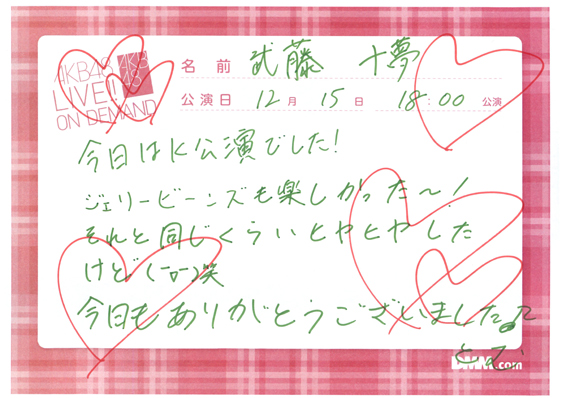 AKB48
LIVE!!
ON DEMAND
AKB
48
名前 武藤 十夢
公演日 12月 15日 18:00 公演
今日はK公演でした!
ジェリービーンズも楽しかった〜!
それと同じくらいヒヤヒヤした
けど(-o-)笑
今日もありがとうございました。
とむ
DMM.com